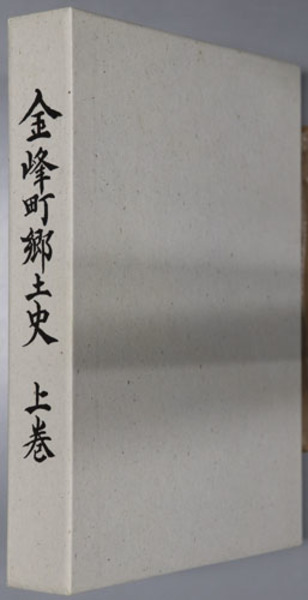 金峰町郷土史 上巻